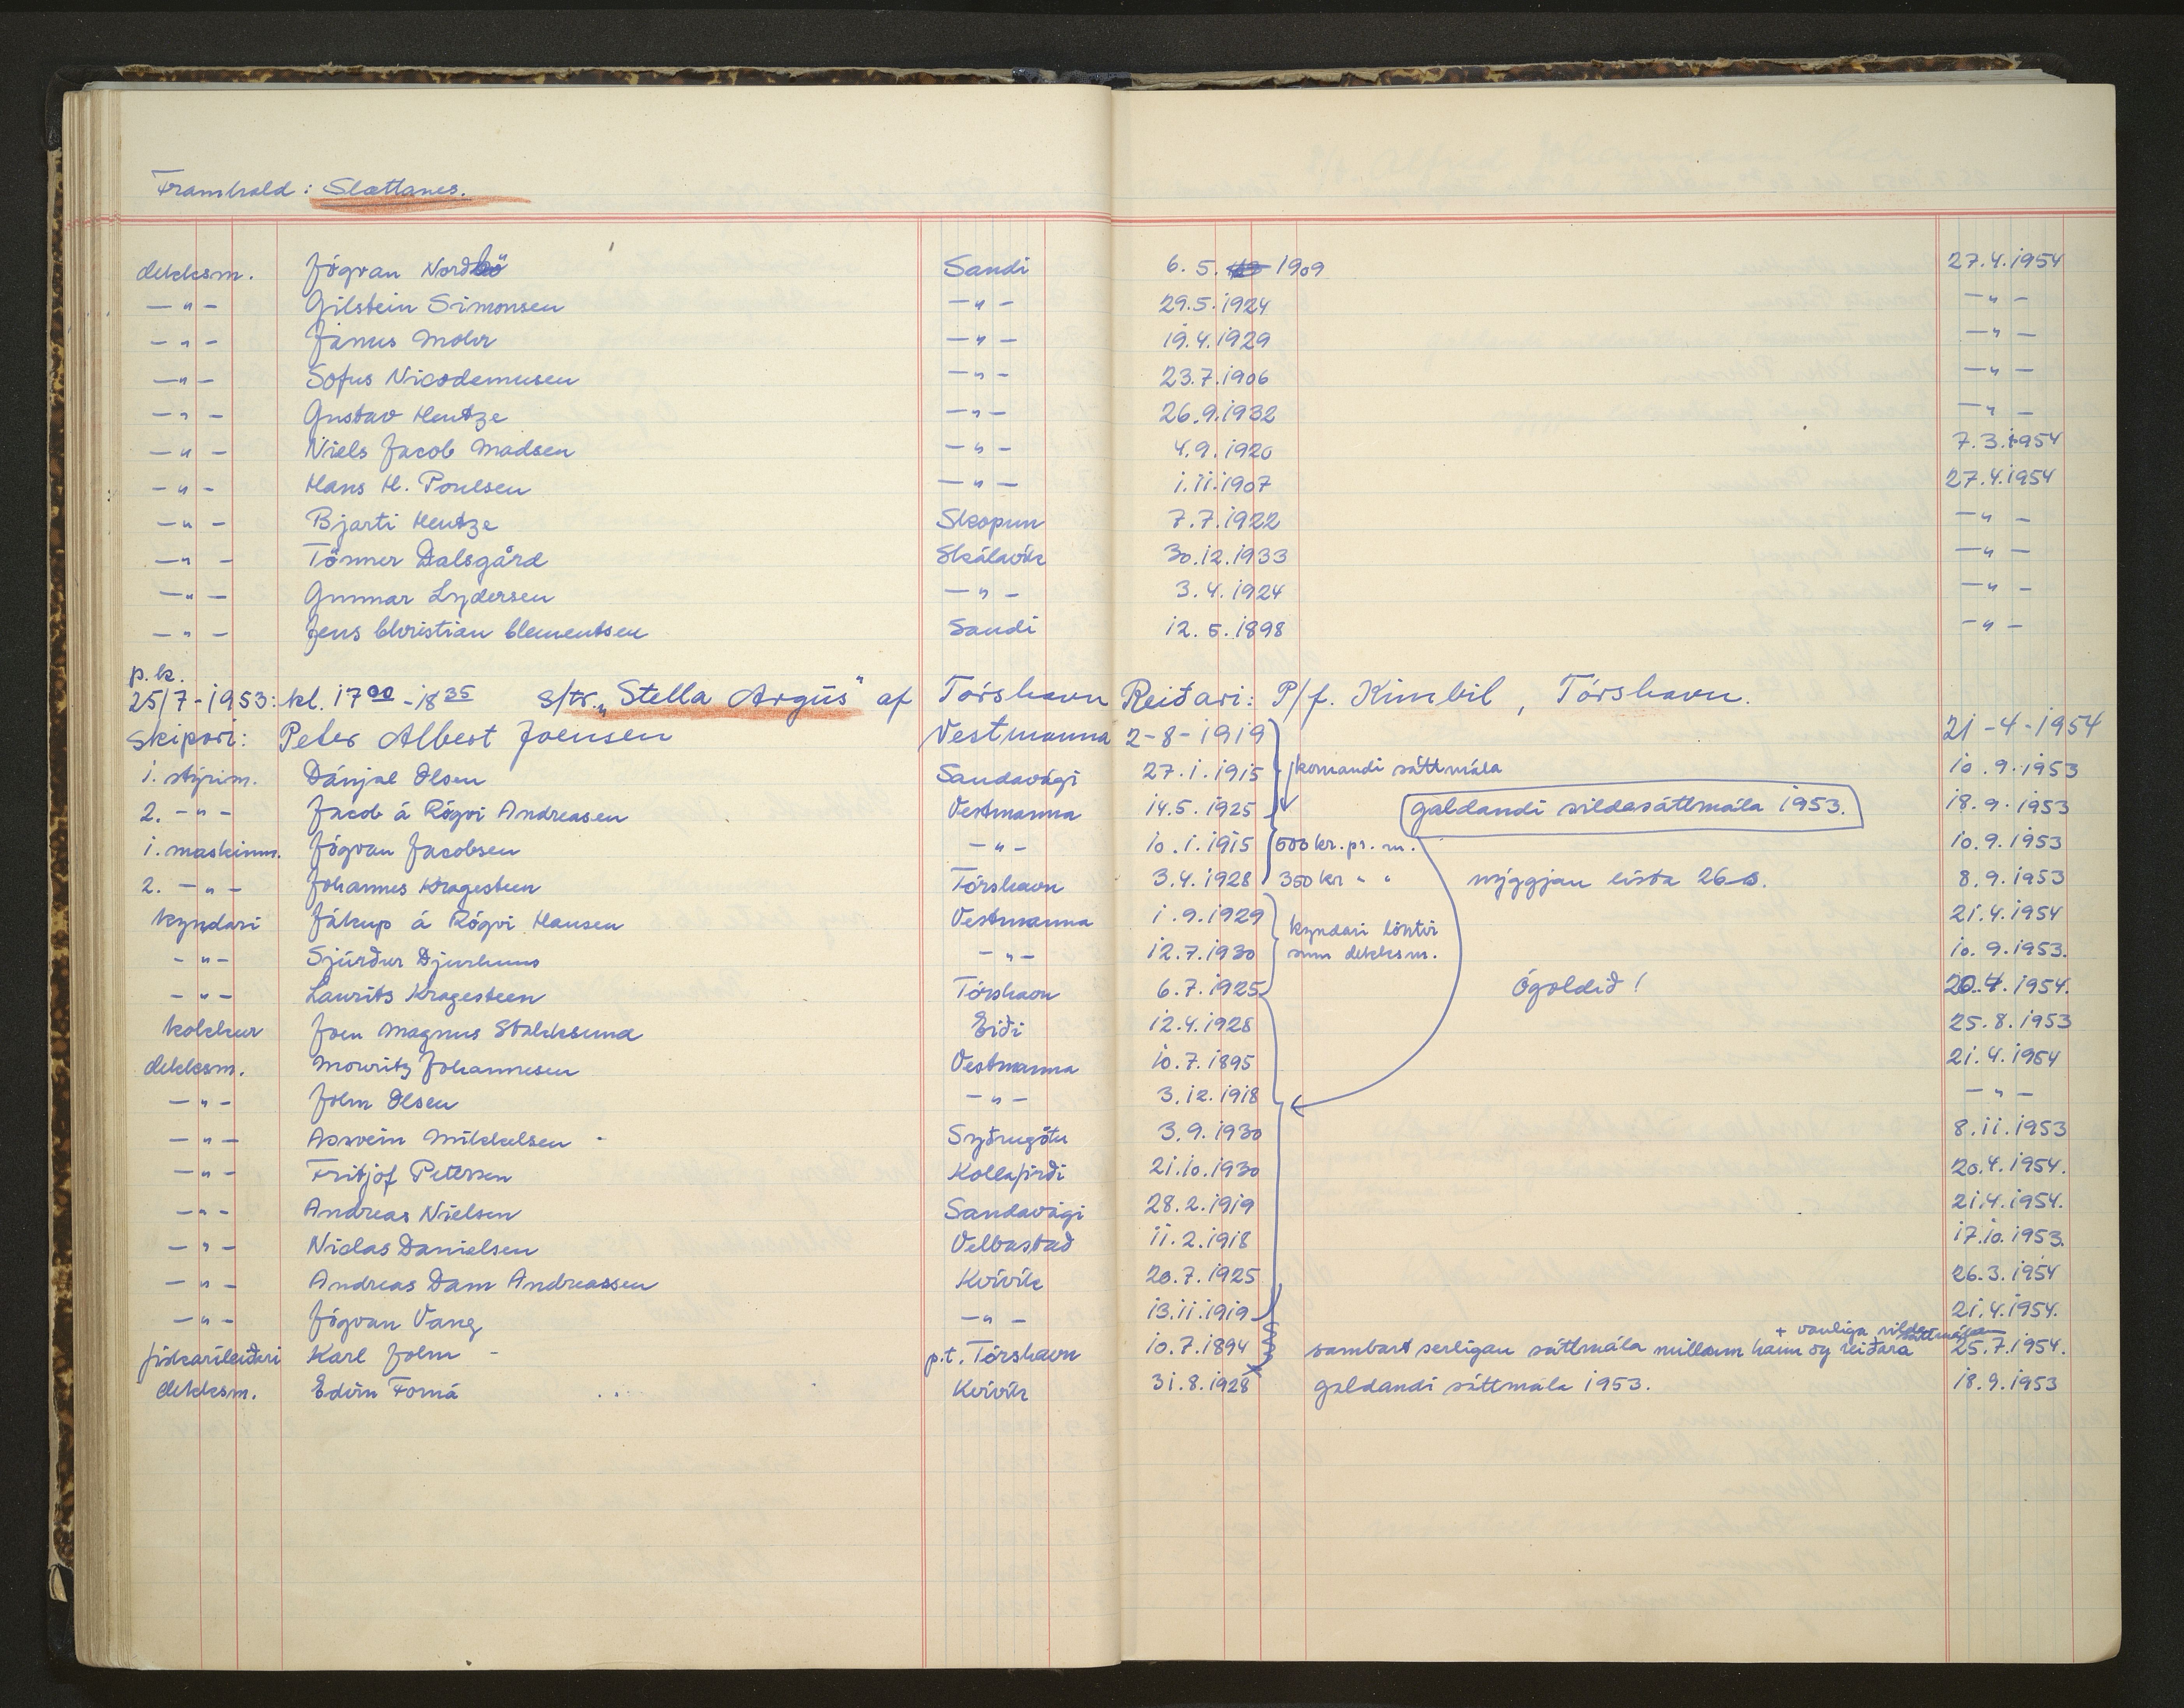 Framhald: Slættanes.
dekksm. Jógvan Norðbö Sandi 6. 5. 1909 27.4.1954
—"— Gilstein Simonsen —"— 29.5.1924 —"—
—"— Jánus Mohr —"— 19.4.1929 —"—
—"— Sofus Nicodemusen —"— 23.7.1906 —"—
—"— Gustav Hentze —"— 26.9.1932 —"—
—"— Niels Jacob Madsen —"— 4.9.1920 7.3.1954
—"— Hans H. Poulsen —"— 1.11.1907 27.4.1954
—"— Bjarti Hentze Skopun 7.7.1922 —"—
—"— Tönner Dalsgård Skálavík 30.12.1933 —"—
—"— Gunnar Lydersen —"— 3.4.1924 —"—
—"— Jens Christian Clementsen Sandi 12.5.1898 —"—
p.k.
25/7-1953: kl. 17 00 - 18 35 S/tr. „Stella Argus" af Tórshavn Reiðari: P/f. Kimbil, Tórshavn.
Skipari: Peter Albert Joensen Vestmanna 2-8-1919 21-4-1954
1. stýrim. Dánjal Olsen Sandavági 27.1.1915 komandi sáttmála 10.9.1953
2. —"— Jacob á Rógvi Andreasen Vestmanna 14.5.1925 galdandi sildasáttmála 1953. 18.9.1953
1. maskinm. Jógvan Jacobsen —"— 10.1.1915 500 kr. pr. m. 10.9.1953
2. —"— Johannes Kragesteen Tórshavn 3.4.1928 350 kr " " nýggjan lista 26 8. 8.9.1953
kyndari Jákup á Rógvi Hansen Vestmanna 1.9.1929 kyndari löntir 21.4.1954
—"— Sjúrður Djurhuus —"— 12.7.1930 sum dekksm. 10.9.1953.
—"— Laurits Kragesteen Tórshavn 6.7.1925 Ógoldið! 20.4.1954.
kokkur Joen Magnus Stakksund Eiði 12.4.1928 25.8.1953
dekksm. Mouritz Johannesen Vestmanna 10.7.1895 21.4.1954
—"— John Olsen —"— 3.12.1918 —"—
—"— Asvein Mikkelsen Syðrugötu 3.9.1930 8.11.1953
—"— Fritjof Petersen Kollafirði 21.10.1930 20.4.1954.
—"— Andreas Nielsen Sandavági 28.2.1919 21.4.1954.
—"— Niclas Danielsen Velbastað 11.2.1918 17.10.1953.
—"— Andreas Dam Andreassen Kvívík 20.7.1925 26.3.1954
—"— Jógvan Vang —"— 13.11.1919 21.4.1954.
+ vanliga sildasáttmálan
fiskarileiðari Karl John p.t. Tórshavn 10.7.1894 sambart serligan sáttmála millum hann og reiðara 25.7.1954.
dekksm. Edvin Forná Kvívík 31.8.1928 galdandi sáttmála 1953. 18.9.1953